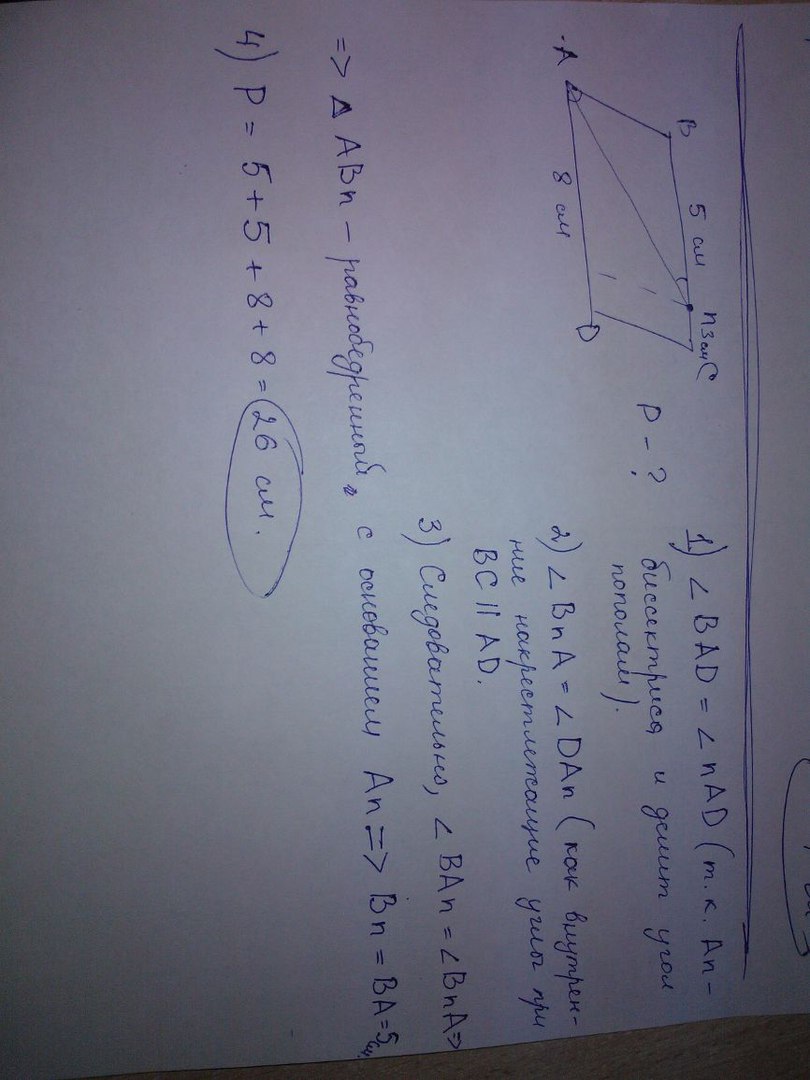 B 5 см n 3 см C
A 8 см D
P - ?
1) ∠ BAD = ∠ nAD (т.к. An -
биссектриса и делит угол
пополам).
2) ∠ BnA = ∠ DAn (как внутрен-
ние накрестлежащие углы при
BC || AD.
3) Следовательно, ∠ BAn = ∠BnA =>
=> Δ ABn - равнобедренный, с основанием An => Bn = BA = 5см
4) P = 5 + 5 + 8 + 8 = 26 см.